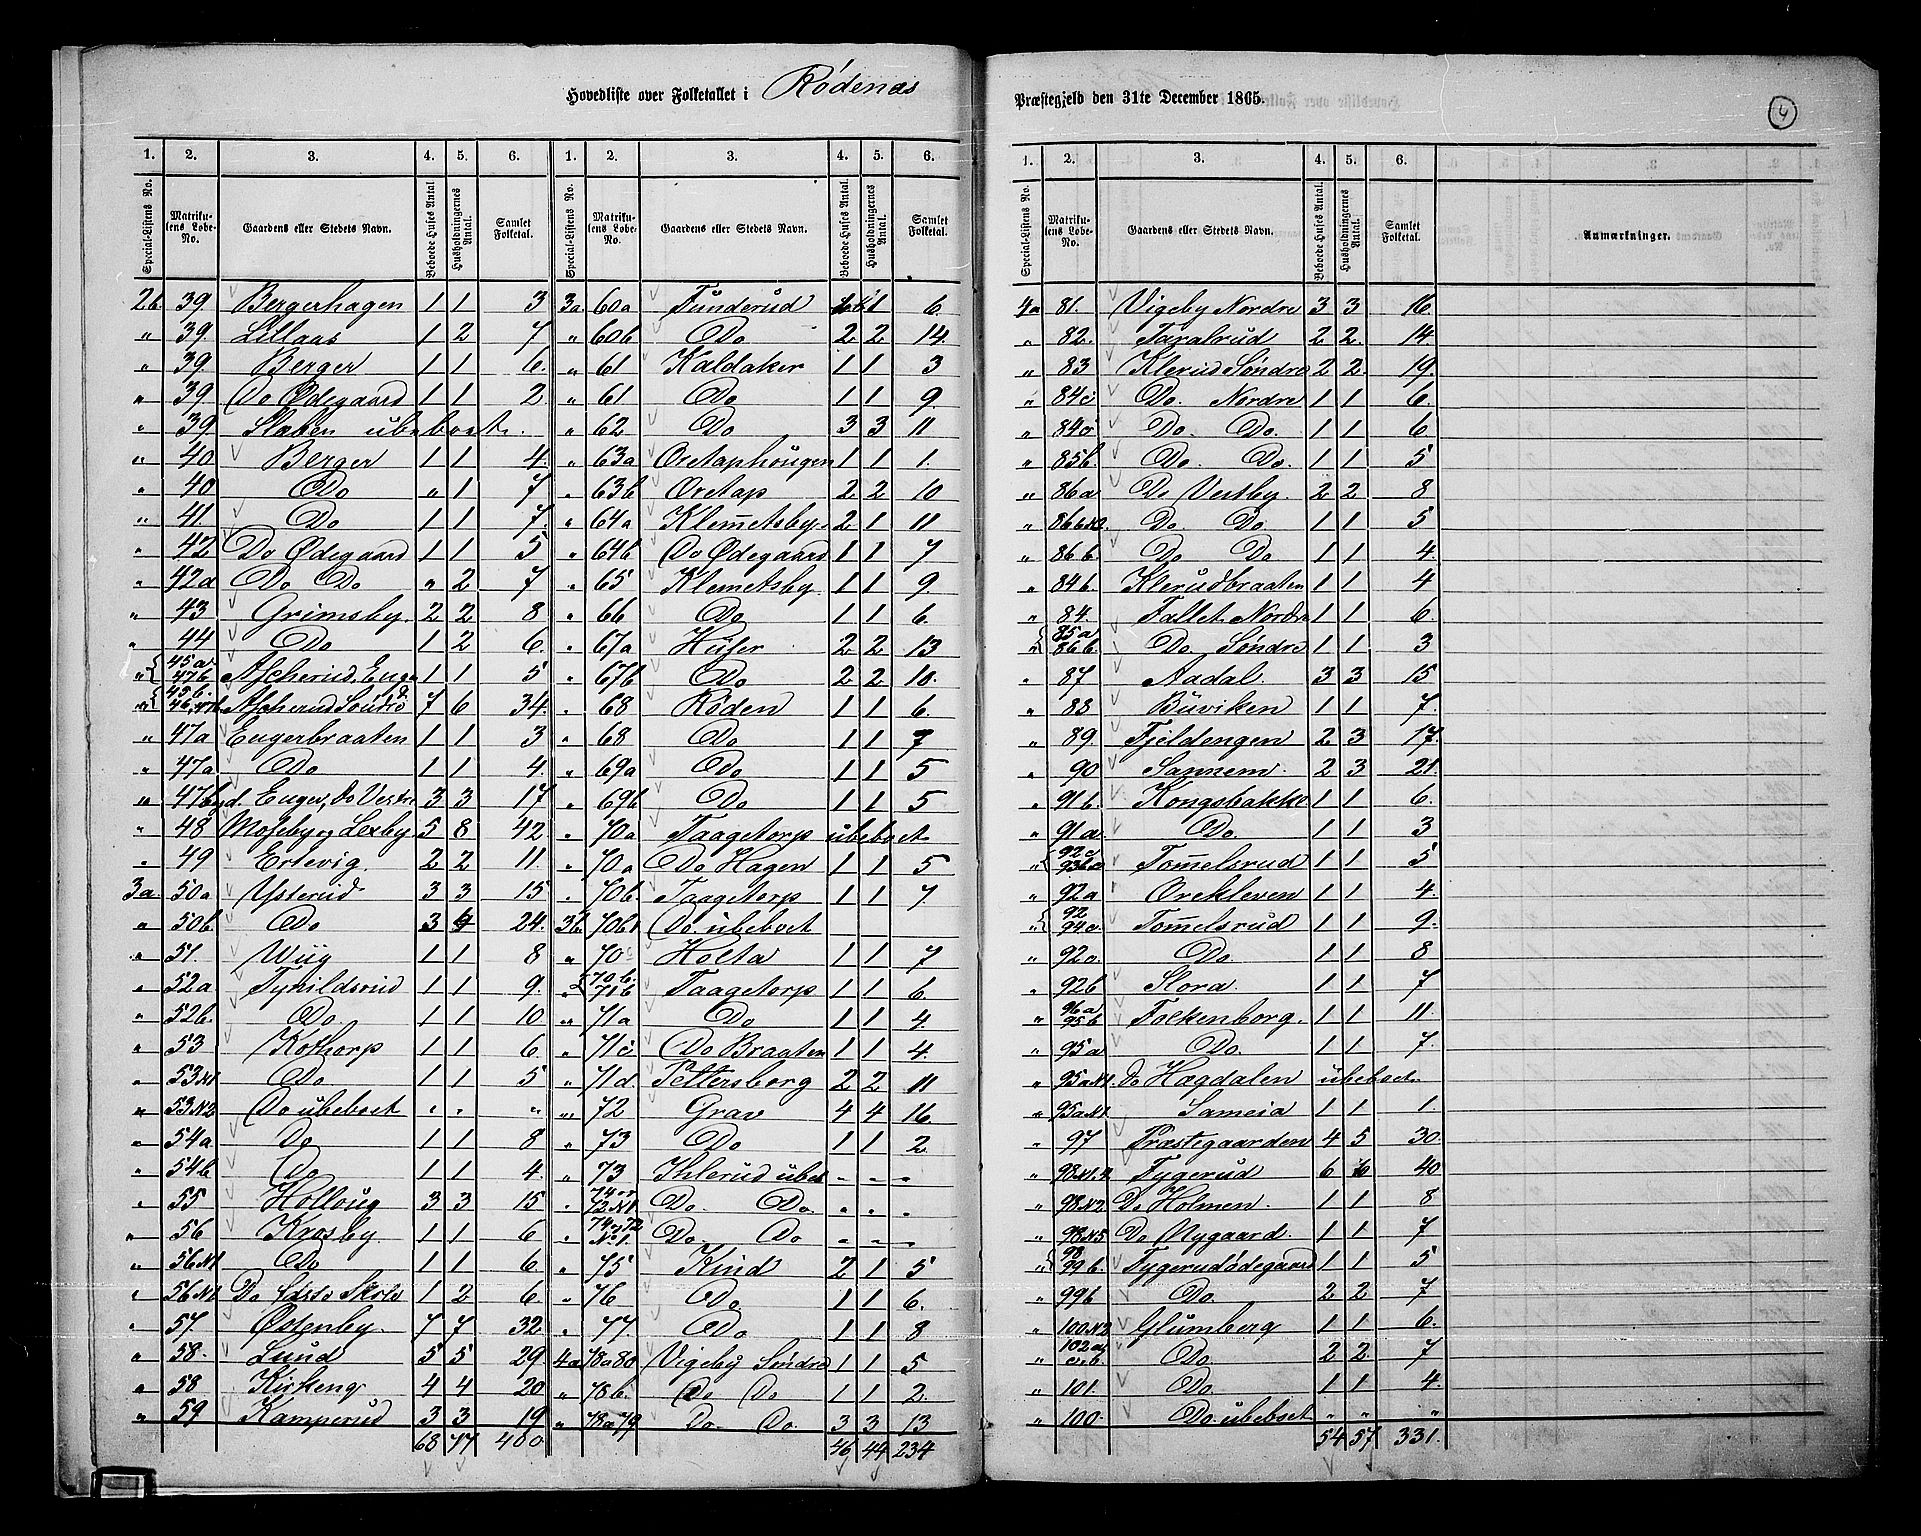 Hovedliste over Folketallet i Rödenæs
Præstegjeld den 31te December 1865.
4
1. 2. 3. 4. 5. 6. 1. 2. 3. 4. 5. 6.
Special-Listens No. Matrikulens Løbe-No. Gaardens eller Stedets Navn. Beboede Huses Antal Husholdningernes Antal. Samlet Folketal. Special-Listens No. Matrikulens Løbe-No. Gaardens eller Stedets Navn. Beboede Huses Antal. Husholdningernes Antal. Samlet Folketal.
2b 39 Bergerhagen 1 1 3
" 39 Lillaas 1 2 7
" 39 Berger 1 1 6
" 39 Do Ødegaard 1 1 2
" 39 Slaben ubeboet
" 40 Berger 1 1 4
" 40 Do " 1 7
" 41. Do 1 1 7
" 42 Do Ødegaard 1 1 5
" 42a Do Do " 2 7
" 43 Grimsby 2 2 8
" 44 Do 1 2 6
" 45a 47b Ascherud, Enger 1 1 5
" Ascherud Söndre 7 6 34
" 47a Engerbraaten 1 1 3
" 47a Do 1 1 4
" 47b d. Enger, Do Vestre 3 3 17
" 48 Moseby og Lexby 5 8 42
" 49 Ertevig 2 2 11
3a 50a Ysterud 3 3 15
" 50b Do 3 4 24
" 51. Wiig 1 1 8
" 52a Tynildsrud 1 1 9
" 52b. Do 1 1 10
" 53 Kothorp 1 1 6
" 53 N1 Do 1 1 5
" 53 N2 Do ubeboet " " "
" 54a Do 1 1 8
" 54b Do 1 1 4
" 55 Holloug 3 3 15
" 56 Krosby 1 1 6
" 56 N1 Do 1 1 6
" 56 N1 Do 1 2 6
" 57 Østenby 7 7 32
" 58. Lund 5 5 29
" 58 Kirkeng 4 4 20
" 59 Kamperud 3 3 19
68 77 400
3a 60a Tunderud 1 1 6
" 60b Do 2 2 14
" 61 Kaldaker 1 1 3
" 61 Do 1 1 9
" 62 Do 3 3 11
" 63a Oretaphougen 1 1 1.
" 63b Oretap 2 2 10
" 64a Klemetsby 2 1 11
" 64b Do Ødegaard 1 1 7
" 65 Klemetsby 1 1 9
" 66 Do 1 1 6
" 67a Huser 2 2 13
" 67b Do 2 2 10
" 68 Röden 1 1 6
" 68 Do 1 1 7
" 69a Do 1 1 5
" 69b Do 1 1 5
" 70a Taagetorp ubeboet
" 70a Do Hagen 1 1 5
" 70b Taagetorp 1 1 7
3b 70b1 Do ubeboet
" 70c Holta 1 1 7
" 70b. 71b Taagetorp 1 1 6
" 71a Do 1 1 4
" 71c Do Braaten 1 1 4
" 71d. Pettersborg 2 2 11
" 72 Grav 4 4 16
" 73 Do 1 1 2
" 73 Ihlerud ubeb " " "
74 og 72 N1 Do. Do. " " "
74 og 72 No 1. Do. Do " " "
" 75 Kind 2 1 5
" 76 Do 1 1 6
" 77 Do 1 1 8
4a 78a 80 Vigeby Söndre 1 1 5
" 78b. Do Do 1 1 2
" 78a 79 Do. Do 3 3 13
46 44 234
1. 2. 3. 4. 5. 6.
Special-Listens No. Matrikulens Løbe-No. Gaardens eller Stedets Navn. Beboede Huses Antal. Husholdningernes Antal. Samlet Folketal. Anmærkninger.
4a 81. Vigeby Nordre 3 3 16
" 82. Taralrud 2 2 14
" 83 Klerud Søndre 2 2 19
" 84c Do. Nordre 1 1 6
" 84c Do. Do. 1 1 6
" 85b. Do. Do. 1 1 5
" 86a Do Vestby 2 2 8
" 86b N2. Do. Do. 1 1 5
" 86b. Do Do 1 1 4
" 84b. Klerudbraaten 1 1 4
" 84. Fallet Nordre 1 1 6
" 85a 86b Do Søndre 1 1 3
" 87 Aadal 3 3 15
" 88 Buviken 1 1 7
" 89 Fjeldengen 2 3 17
" 90 Sannem 2 3 21
" 91b. Kongsbakke 1 1 6
" 91a Do. 1 1 3
" 92c 93b Tomelsrud 1 1 5
" 92a Orekleven 1 1 4
" 92 94 Tomelsrud 1 1 9
" 92 Do. 1 1 8
" 92b Slora 1 1 7
" 96a 95b Folkenborg 1 1 11
" 95a Do. 1 1 7
" 95a N1. Do Hægdalen ubeboet
" 95a N1. Sameia 1 1 1.
" 97 Præstegaarden 4 5 30
" 98 N1. Tygerud 6 6 40
" 98 N2 Do Holmen 1 1 8
" 98 N5 Do Nygaard 1 1 7
" 98 99b Tygerudødegaard 1 1 5
" 99b Do. 2 2 7
" 100 N2 Glumberg 1 1 6
" 102a og b. Do. 2 2 7
" 101. Do 1 1 4
" 100. Do ubeboet " " "
54 57 331